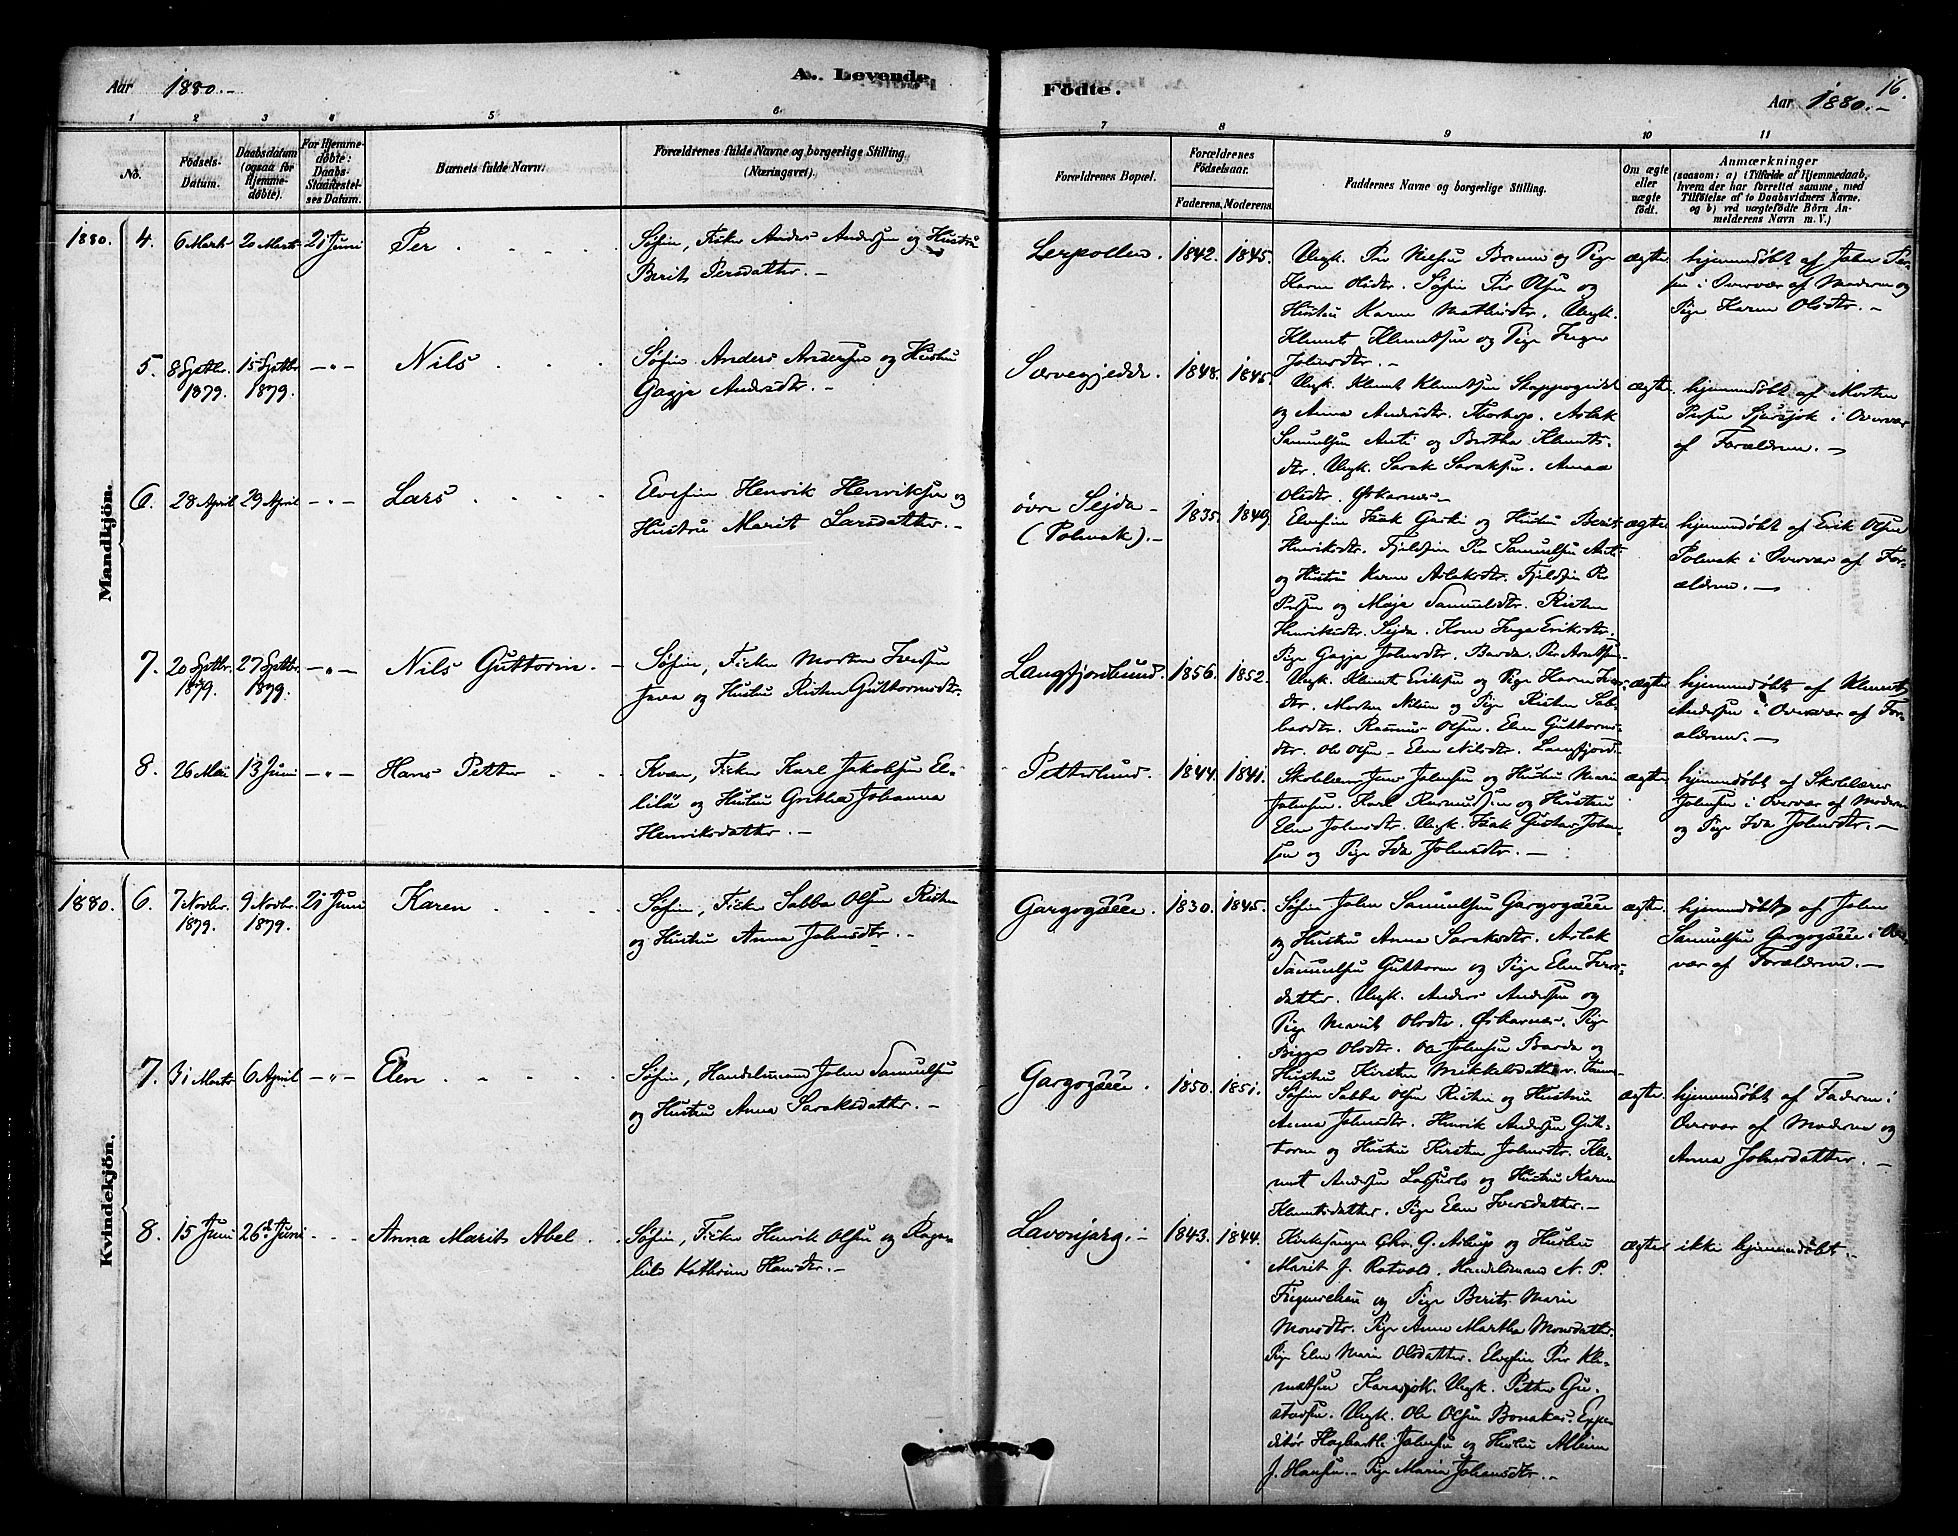 Aar 1880.-
A. Levende
Fødte.
16.
Aar 1880.-
1 2 3 4 5 6. 7 8 9 10 11
No.
Fødsels-
Datum.
Daabsdatum
(ogsaa for
Hjemme-
døbte).
For Hjemme-
døbte:
Daabs-
Stadfæstel-
ses Datum.
Barnets fulde Navn.
Forældrenes fulde Navne og borgerlige Stilling
(Næringsvei).
Forældrenes Bopæl.
Forældrenes
Fødselsaar.
Faderens. Moderens.
Faddernes Navne og borgerlige Stilling.
Om ægte
eller
uægte
født.
Anmærkninger
(saasom: a) i Tilfælde af Hjemmedaab,
hvem der har forrettet samme, med
Tilføielse af to Daabsvidners Navne,
og b) ved uægtefødte Børn An-
melderens Navn m. V.)
Mandkjön.
1880. 4. 6 Marts 20 Marts 21 Juni Per
Søfin, Fisker Anders Andersen og Hustru
Berit Persdatter.-
Lerpollen. 1842. 1845.
Ungk. Per Nielsen og Pige
Karen Olsdtr. Søfin Per Olsen og
Hustru Karen Mathisdtr. Ungk.
Klemet Klemetsen og Pige Inger
Johnsdtr.-
ægte. hjemmedøbt af John Per-
sen i Overvær af Moderen og
Pige Karen Olsdtr.-
5. 8 Septbr. 15 Septbr. -"- Nils
1879. 1879.
Søfin Anders Andersen og Hustru
Gagja Andersdtr.-
1848. 1845.
Ungk. Klemet Klemetsen
og Anna Andersdtr. Aslak
Samuelsen Anti og Bertha Klemets-
dtr. Ungk. Sarak Saraksen. Anna
Olsdtr.
ægte. hjemmedøbt af Morten
Persen i Overvær
af Forældrene.-
6. 28 April 29 April -"- Lars
Elvefin Henrik Henriksen og
Hustru Marit Larsdatter.-
øvre Sejda-
(Polmak).-
1835. 1849.
Elvefin Isak og Hustru Berit
Henriksdtr. Fjeldfin Per Samuelsen Anti
og Hustru Karen Aslaksdtr. Fjeldfin Per
Persen og Maja Samuelsdtr. Risten
Henriksdtr. Sejda. Inga Eriksdtr.
Pige Gagja Johnsdtr.
ægte hjemmedøbt af Erik Olsen
Polmak i Overvær af For-
ældrene.-
7. 20 Septbr. 27 Septbr. -"- Nils Guttorm.-
1879. 1879.
Søfin, Fisker Morten Iversen
og Hustru Risten Guttormsdtr.
Langfjordbund. 1856. 1852.
Ungk. Klemet Eriksen og Pige Karen Ivers-
dtr. Morten Nilsen og Pige Risten Sab-
basdtr. Rasmus Olsen. Elen Guttorms-
dtr. Ole Olsen - Elen Nilsdtr. Langfjord-
ægte. hjemmedøbt af Klemet
Andersen i Overvær af For-
ældrene.-
8. 26 Mai 13 Juni -"- Hans Petter
Kvæn, Fisker Karl Jakobsen El-
lilä og Hustru Gretha Johanna
Henriksdatter.-
Petterlund. 1844. 1841.
Skolelærer Johnsen og Hustru Marie
Johnsen. Karl Rasmussen og Hustru
Elen Johnsdtr. Ungk. Isak Gustav John-
sen og Pige Ida Johnsdtr.-
ægte hjemmedøbt af Skolelærer
Johnsen i Overvær af Moderen
og Pige Ida Johnsdtr.-
Kvindekjön.
1880. 6. 7 Novbr. 9 Novbr. 21 Juni Karen
1879. 1879.
Søfin, Fisker Sabba Olsen Risten
og Hustru Anna Johnsdtr.-
Gargogæcce. 1830. 1845.
Søfin John Samuelsen Gargogæcce
og Hustru Anna Saraksdtr. Aslak
Samuelsen Guttorm og Pige Elen Ivers-
datter. Ungk. Anders Andersen og
Pige Marit Olsdtr. Pige
Bigge Olsdtr. Ole Johnsen Barda og
Hustru Kirsten Mikkelsdatter.
ægte. hjemmedøbt af John
Samuelsen Gargogæcce i Over-
vær af Forældrene.-
7. 31 Marts 6 April -"- Elen
Søfin, Handelsmand John Samuelsen
og Hustru Anna Saraksdatter.-
Gargogæcce. 1850. 1851.
Søfin Sabba Olsen Risten og Hustru
Anna Johnsdtr. Henrik Andersen Gut-
torm og Hustru Kirsten Johnsdtr. Kle-
met Andersen og Hustru Karen
Klemetsdatter. Pige Elen Iversdatter.-
ægte. hjemmedøbt af Faderen i
Overvær af Moderen og
Anna Johnsdatter.-
8. 15 Juni 26d Juni Anna Marit Abel
Søfin, Fisker Henrik Olsen og Ragn-
hild Kathrine Hansdtr.-
Lavonjarg.- 1843. 1844.
Kirkesanger Chr. G. og Hustru
Marit J. Handelsmand N. P.
og Pige Berit Marie
Monsdtr. Pige Anne Martha Monsdatter.
Pige Elen Marie Olsdatter. Elvefin Per Kle-
metsen Karasjok. Ungk. Petter Gu-
stavsen. Ungk. Ole Olsen Bonakas. Expe-
ditør Hagbarth Johnsen og Hustru
J. Hansen.- Pige Maria Johansdtr.-
ægte ikke hjemmedøbt.-